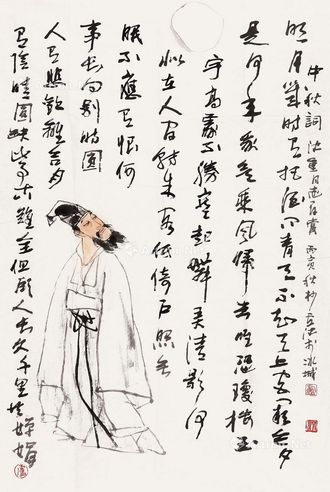 中秋詞 同志存賞 丙寅秋杪 於冰城
明月幾時有把酒問青天不知天上宮闕今夕
是何年我欲乘風歸去唯恐瓊樓玉
宇高處不勝寒起舞弄清影何
似在人間轉朱閣低綺户照無
眠不應有恨何
事长向别時圓
人有悲歡離合月
有陰晴圓缺此事古難全但願人长久千里共嬋娟